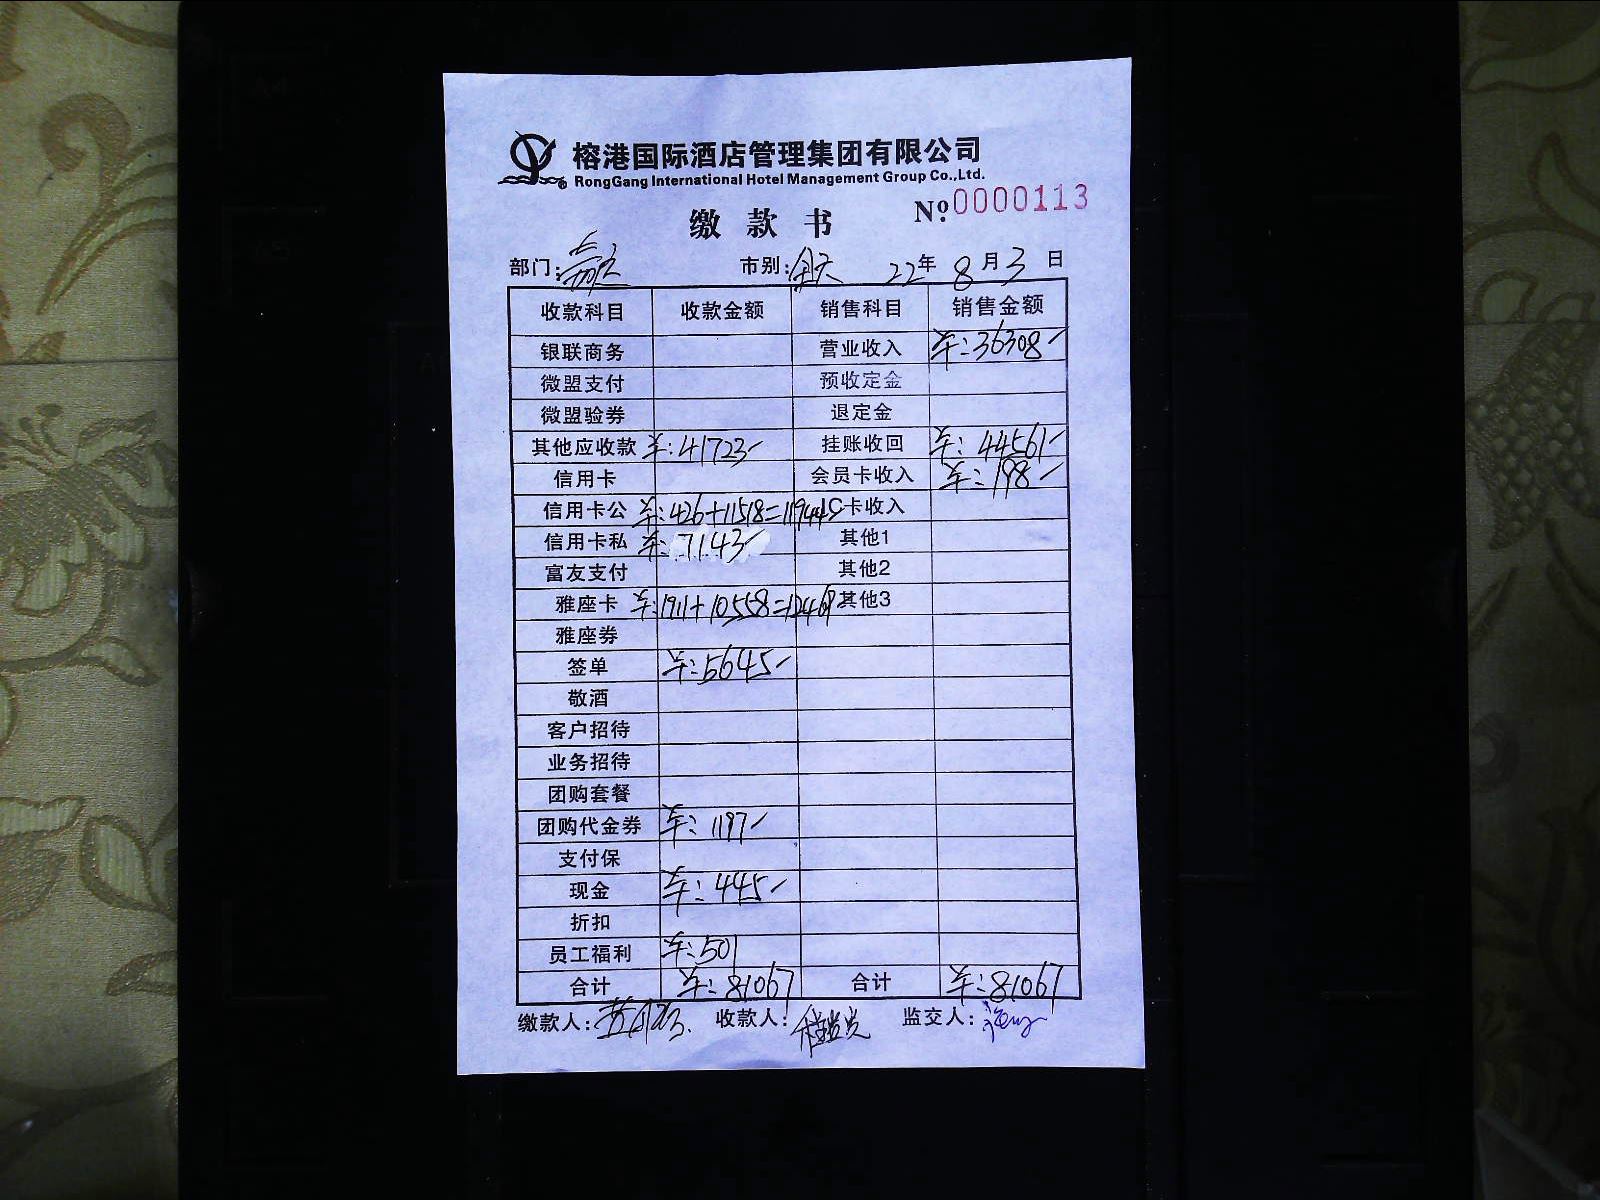 榕港国际酒店管理集团有限公司
RongGang International Hotel Management Group Co.,Ltd.
缴款书 Nº 0000113
部门: 市别:全天 22年8月3日
收款科目 收款金额 销售科目 销售金额
银联商务 营业收入 ¥:36308
微盟支付 预收定金
微盟验券 退定金
其他应收款 ¥:41723 挂账收回 ¥:44561
信用卡 会员卡收入 ¥:198
信用卡公 ¥:426+11518=11944 C卡收入
信用卡私 ¥:7143 其他1
富友支付 其他2
雅座卡 ¥:1911+10558=12469 其他3
雅座券
签单 ¥:5645
敬酒
客户招待
业务招待
团购套餐
团购代金券 ¥:1197
支付保
现金 ¥:445
折扣
员工福利 ¥:501
合计 ¥:81067 合计 ¥:81067
缴款人: 收款人: 监交人: